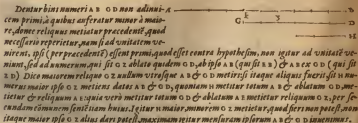 Dentur bini numeri A B C D non adinui-
cem primi, à quibus auferatur minor à maio-
re, donec reliquus metiatur præcedentē, quod
necessario reperietur, nam si ad vnitatem ve-
nirent, ipsi (per præcedentē) essent primi, quod esset contra hypothesim, non igitur ad vnitatē ve-
niunt, sed ad numerum, qui sit G Z ablato quidem C D, ab ipso
2 D) Dico maiorem reliquo G Z nullum vtrosque A B & C D metiri: si itaque aliquis fuerit, sit
merus maior ipso G Z metiens datos A B & C D, quoniam H metitur totum C D & ablatum
tietur & reliquum quia verò metitur totum & ablatum metietur reliquum G Z, per se-
cundam cõmunem sentētiam huius. Igitur H maior, minorem G Z metietur, quod fieri non potest, non
itaque maior ipso G Z alius dari potest, maximam igitur mensuram ipsorum A B & C D inuenimus.
B
G
D
H